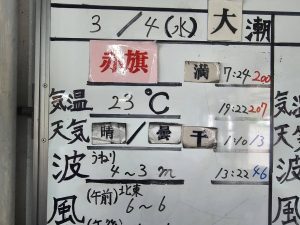 3/4(水) 大潮
赤旗 満 7:24 200
気温 23℃ 19:22 207
天気 晴/曇 干 1:10 13
波 うねり 4~3m 13:22 46
(午前) 北東
風 6~6